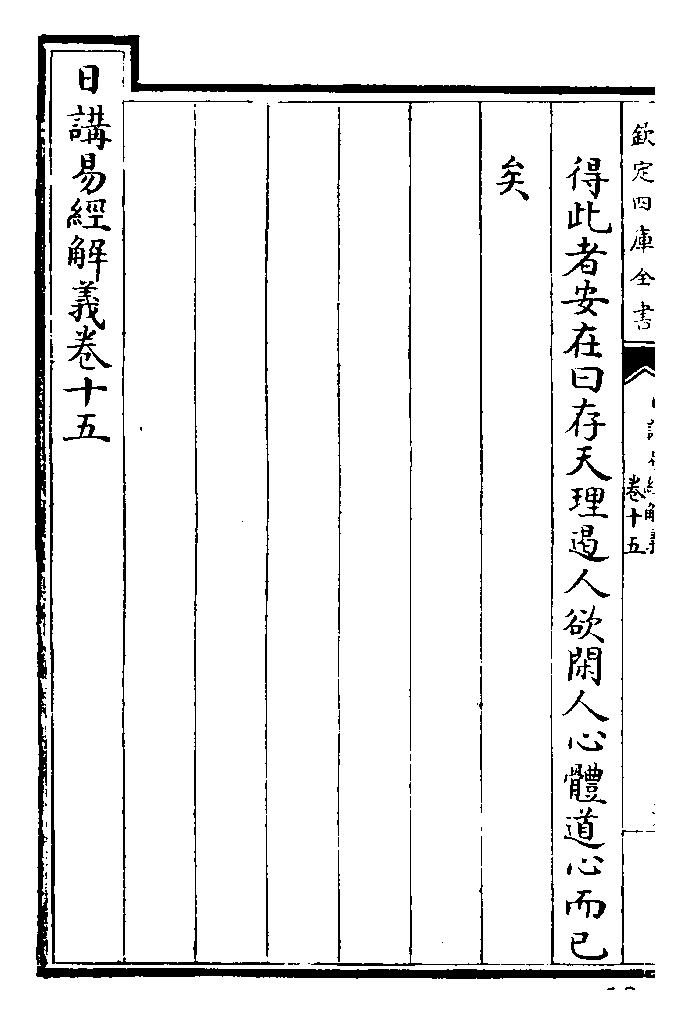 欽定四庫全書
日講易經解義
卷十五
得此者安在曰存天理遏人欲閑人心體道心而已
矣
日講易經解義卷十五